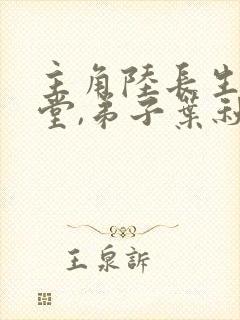 主角陸長生
堂,弟子葉秋
王泉訴